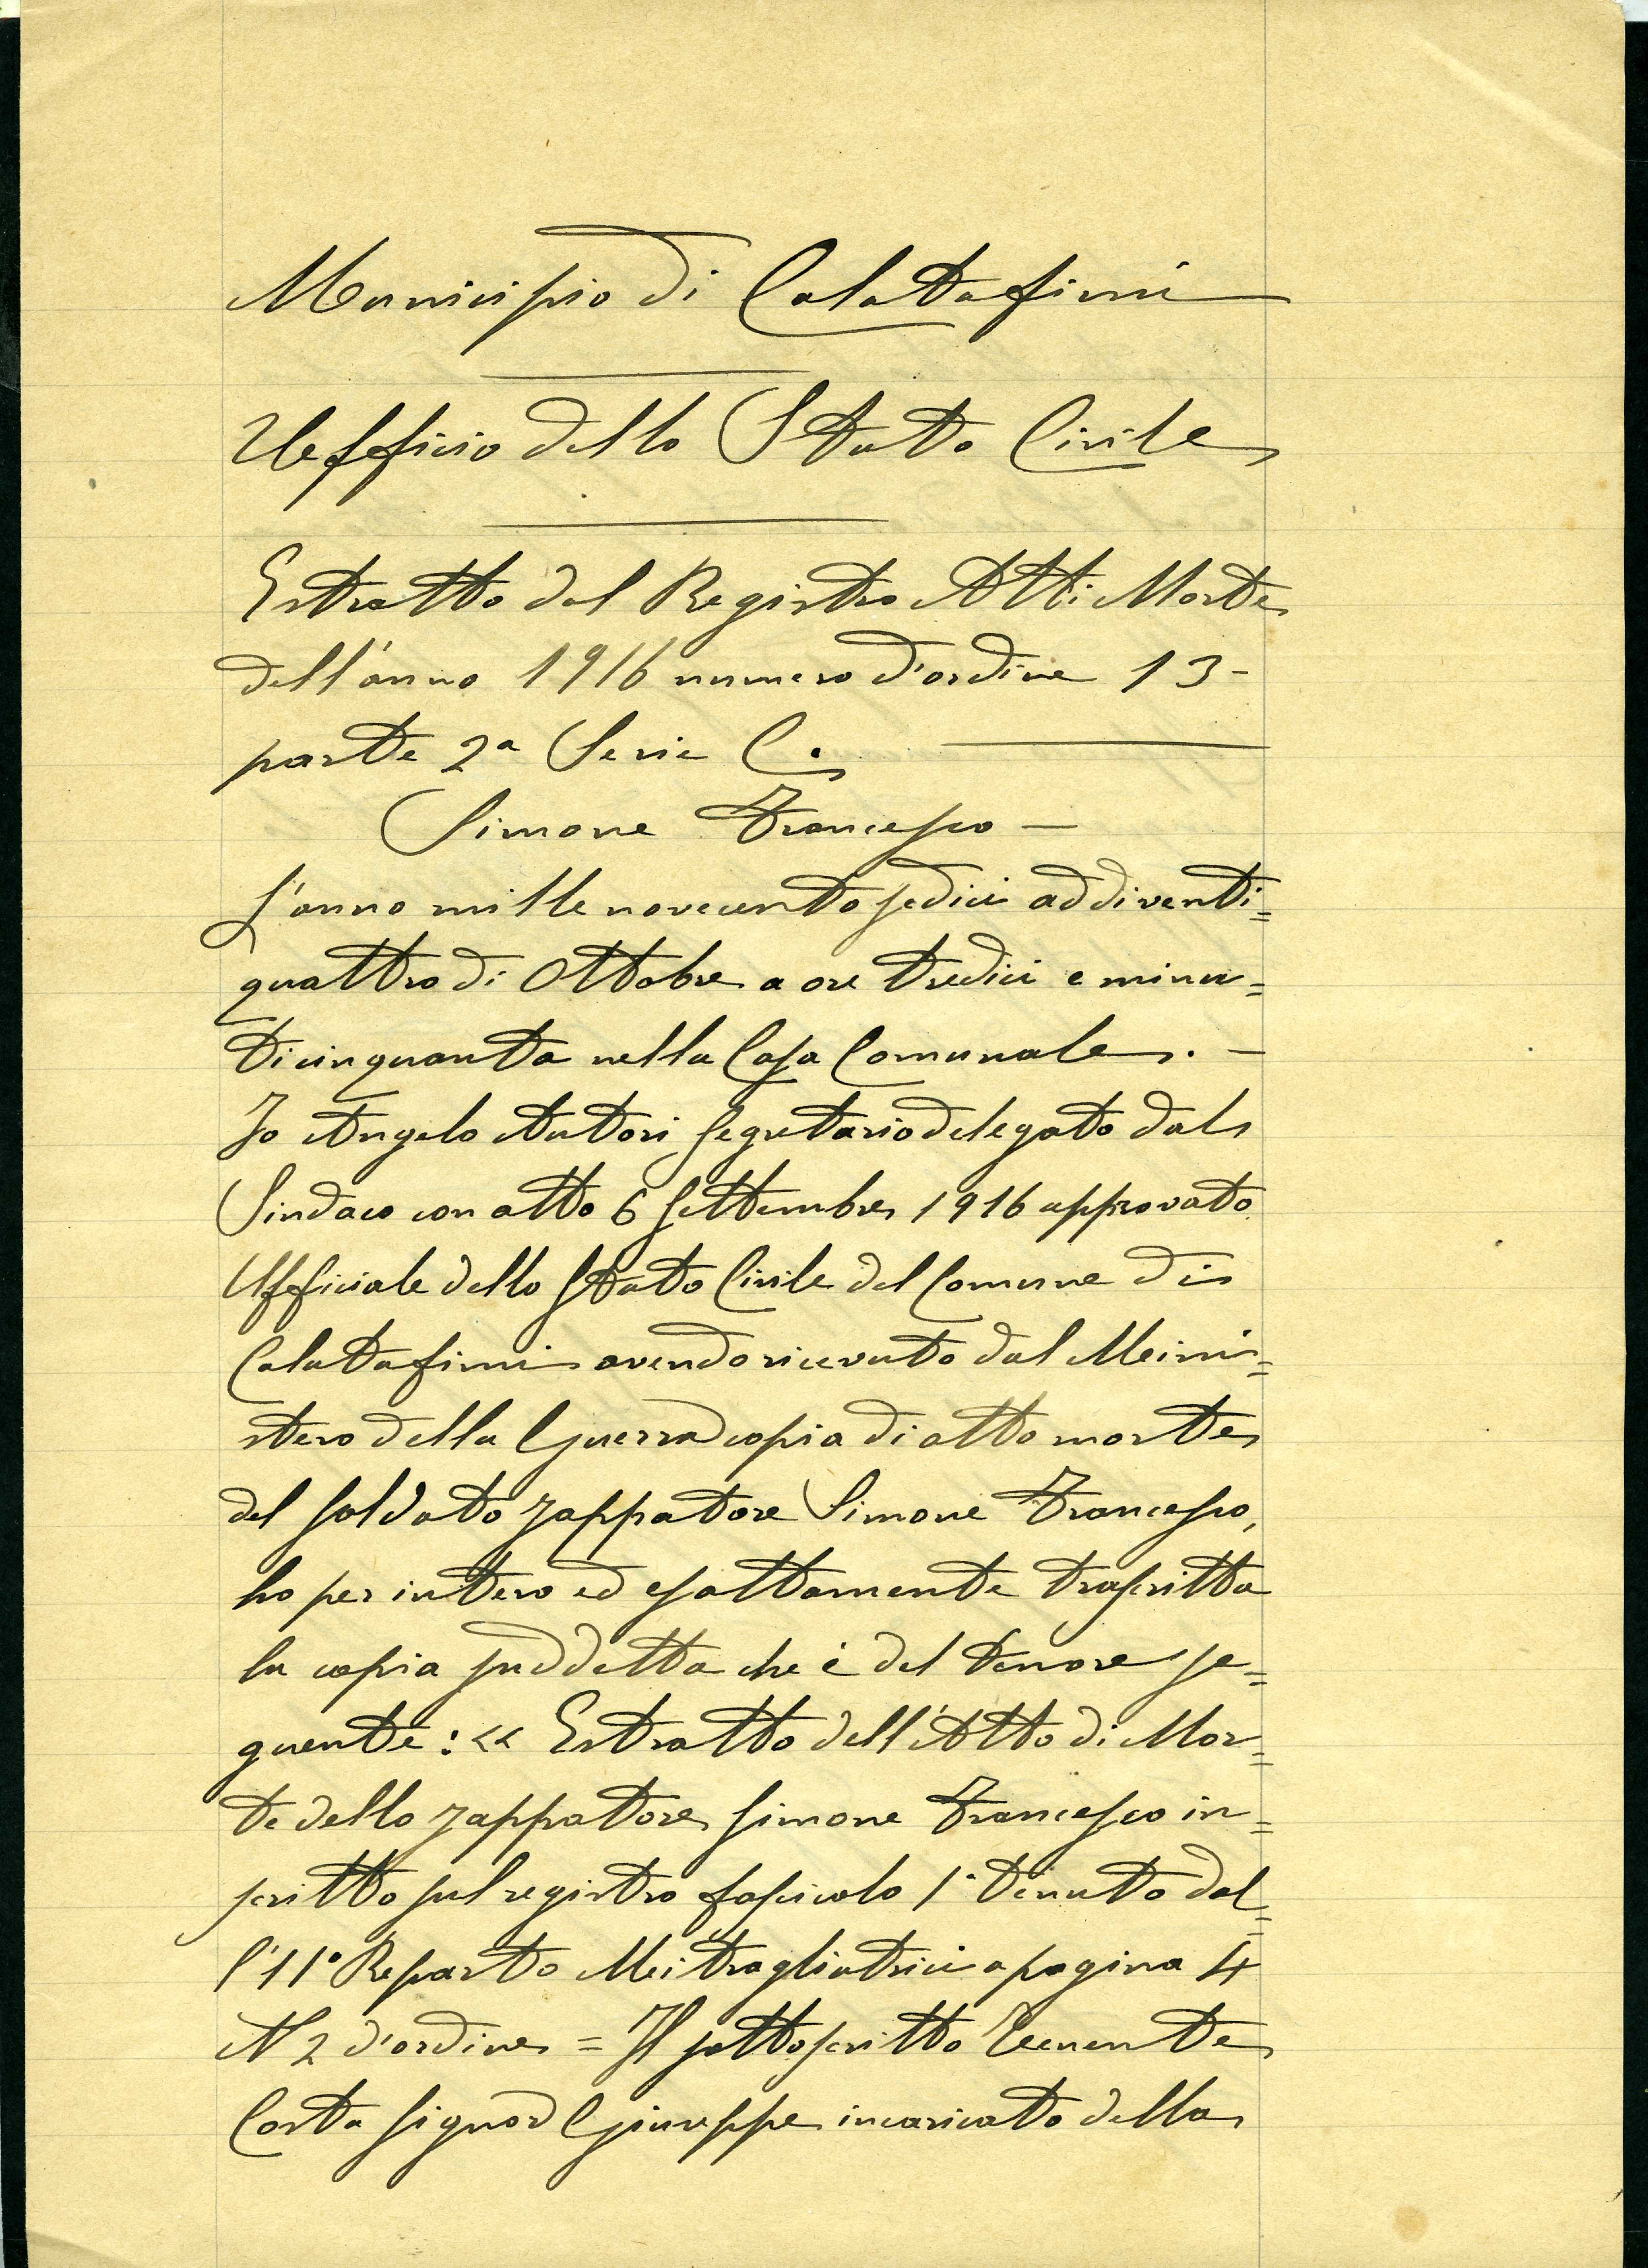 Municipio di Calatafimi
Ufficio dello Stato Civile
Estratto dal Registro Atti Morte
dell'anno 1916 numero d'ordine 13-
parte 2ª Serie C.
Simone Francesco —
L'anno mille novecento sedici addi venti=
quattro di Ottobre a ore tredici e minu=
ti cinquanta nella Casa Comunale. —
Io Angelo Autori Segretario delegato dal
Sindaco con atto 6 Settembre 1916 approvato
Ufficiale dello Stato Civile del Comune di
Calatafimi avendo ricevuto dal Mini=
stero della Guerra copia di atto morte
del soldato zappatore Simone Francesco,
ho per intero ed esattamente trascritta
la copia suddetta che è del tenore se=
guente: « Estratto dell'Atto di Mor=
te dello zappatore Simone Francesco in=
scritto sul registro fascicolo 1° tenuto dal=
l'11° Reparto Mitragliatrici a pagina 4
N 2 d'ordine = Il sottoscritto Tenente
Costa Signor Giuseppe incaricato della